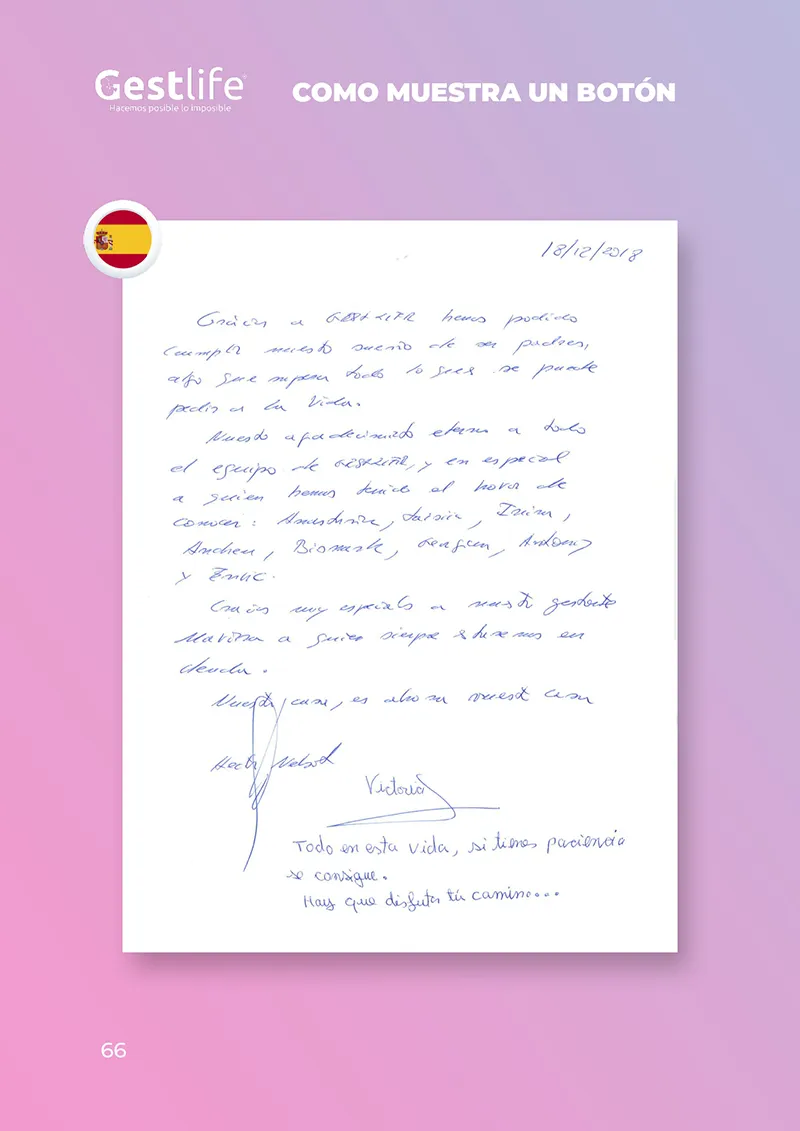 Gestlife
Hacemos posible lo imposible
COMO MUESTRA UN BOTÓN
18/12/2018
Gracias a GESTLIFE hemos podido
cumplir nuestro sueño de ser padres,
algo que supera todo lo que se puede
pedir a la Vida.
Nuestro agradecimiento eterno a todo
el equipo de GESTLIFE, y en especial
a quien hemos tenido el honor de
conocer: Anastasia, Irina,
Andreu, Bismark, Antony
y
Gracias muy especiales a nuestra gestante
a quien siempre estaremos en
deuda.
Nuestra casa, es ahora vuestra casa
Victoria
Todo en esta vida, si tienes paciencia
se consigue.
Hay que disfrutar tú camino...
66